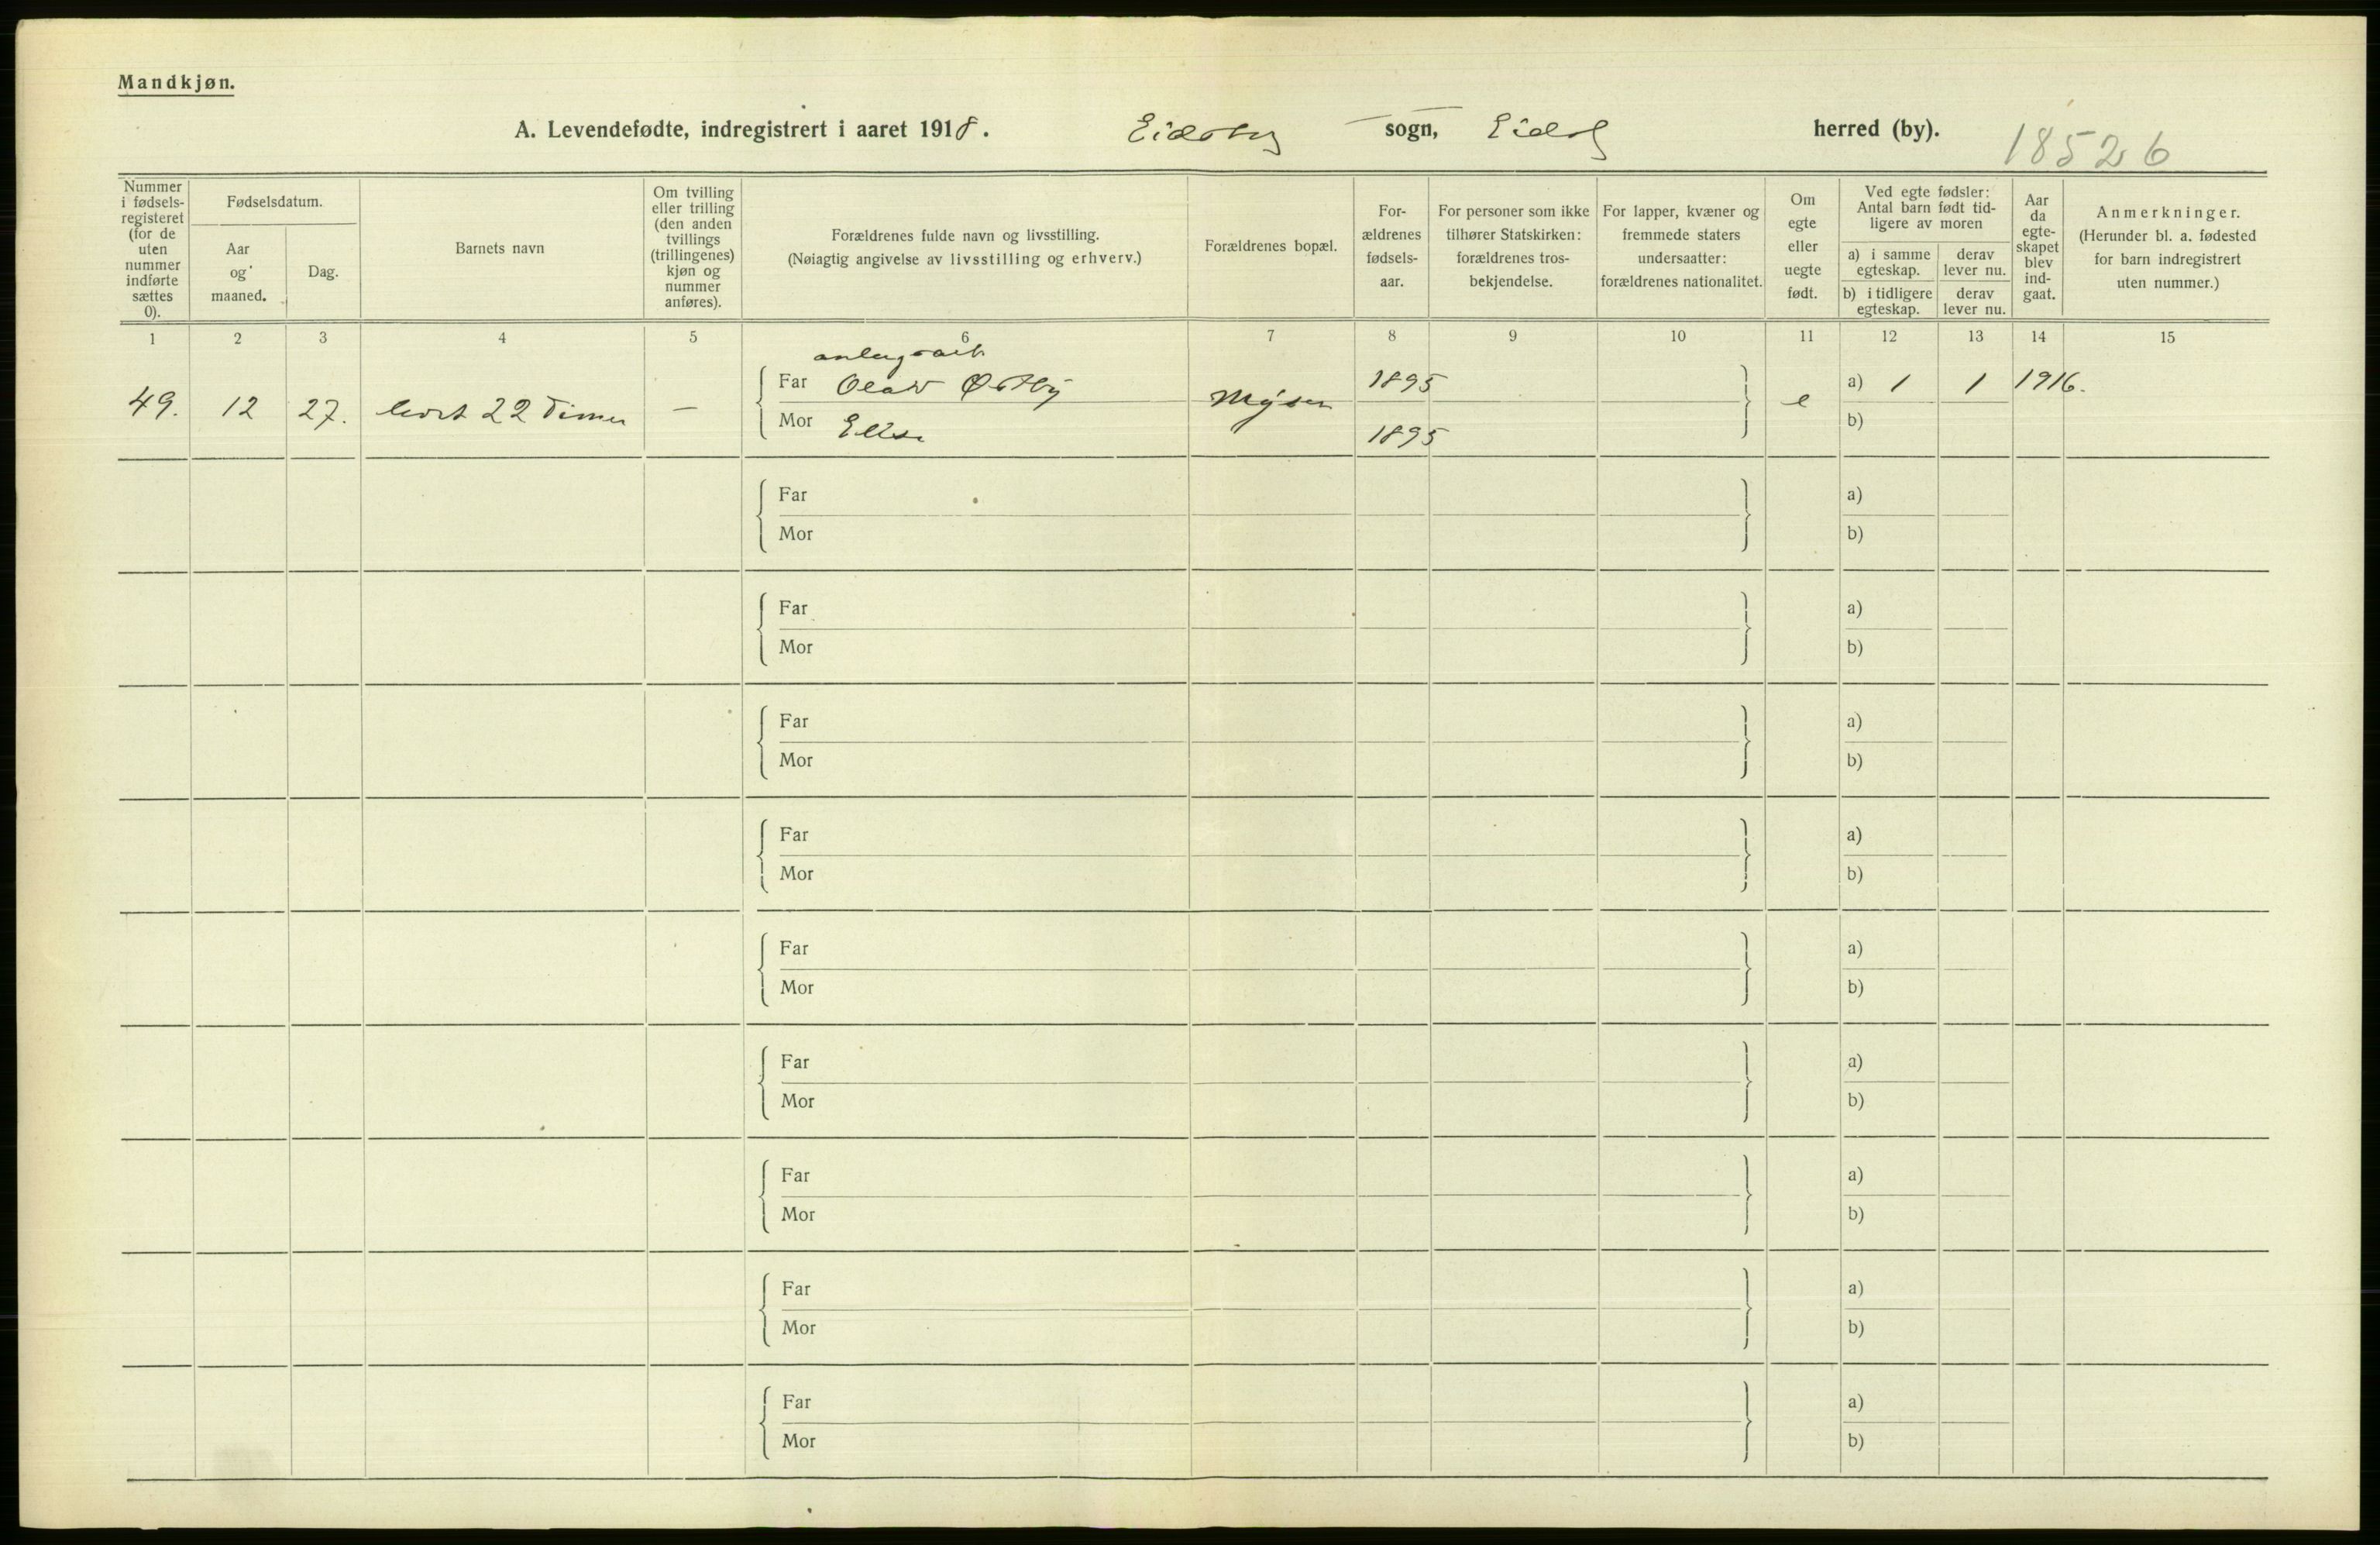 Mandkjøn.
A. Levendefødte, indregistrert i aaret 1918. Eidsberg sogn, Eidsb herred (by).
18526
Nummer i fødselsregisteret (for de uten nummer indførte sættes 0).
Fødselsdatum.
Aar og maaned.
Dag.
Barnets navn
Om tvilling eller trilling (den anden tvillings (trillingenes) kjøn og nummer anføres).
Forældrenes fulde navn og livsstilling.
(Nøiagtig angivelse av livsstilling og erhverv.)
Forældrenes bopæl.
For-ældrenes fødsels-aar.
For personer som ikke tilhører Statskirken: forældrenes tros-bekjendelse.
For lapper, kvæner og fremmede staters undersaatter: forældrenes nationalitet.
Om egte eller uegte født.
Ved egte fødsler: Antal barn født tid-ligere av moren
a) i samme egteskap.
derav lever nu.
b) i tidligere egteskap.
derav lever nu.
Aar da egte-skapet blev ind-gaat.
Anmerkninger.
(Herunder bl. a. fødested for barn indregistrert uten nummer.)
1 2 3 4 5 6 7 8 9 10 11 12 13 14 15
anlegsarb
49. 12 27. levet 22 Timer — Far Olav Østby Mysen 1895 e a) 1 1 1916.
Mor Ellse 1895 b)
Far a)
Mor b)
Far a)
Mor b)
Far a)
Mor b)
Far a)
Mor b)
Far a)
Mor b)
Far a)
Mor b)
Far a)
Mor b)
Far a)
Mor b)
Far a)
Mor b)